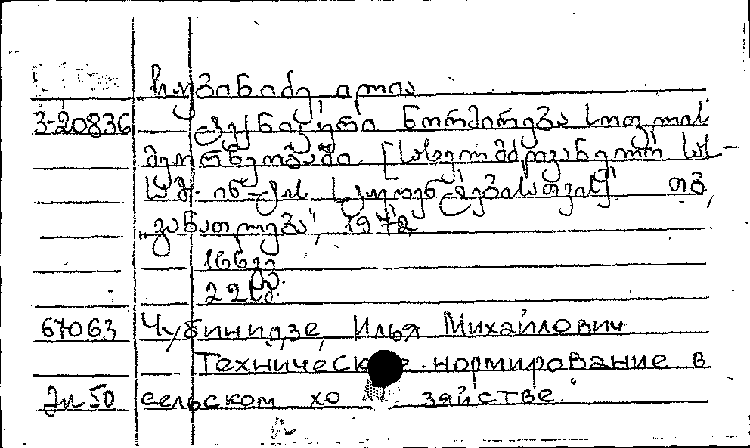 ჩუბინიძე ილია
3-20836 ტექნიკური ნორმირება სოფლის
მეურნეობაში [სახელმძღვანელო სას-
სამ. ინ-ტის სტუდენტებისათვის] თბ.,
„განათლება", 1972
166გვ.
67063 Чубинидзе, Илья Михайлович
Техническое нормирование в
сельском хо зяйстве.